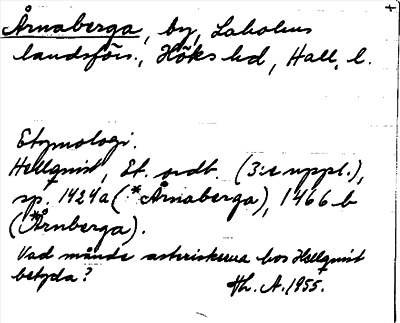 Årnaberga, by, Laholms
landsförs., Höks hd, Hall. l.
Etymologi.
Hellquist, Et. ordb. (3:e uppl.),
sp. 1424a (*Årnaberga), 1466 b
(*Årnberga).
Vad månde asteriskerna hos Hellquist
betyda? Hh. A. 1955.